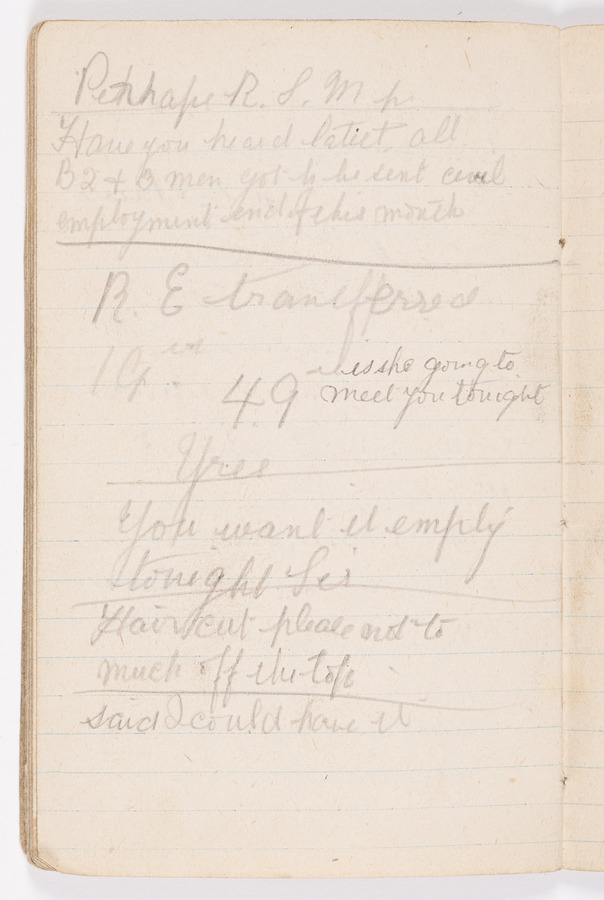 Perhhaps R. S. M
Have you heard latest all
B2 + 3 men got to be sent civil
employment end of this month
R. E transferred
19
49 is she going to
meet you tonight
You want it empty
tonight Sir
Hair cut please not to
much off the top
said I could have it